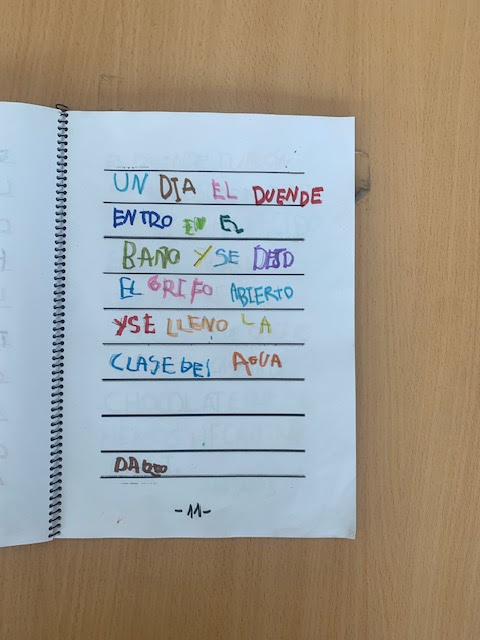 UN DIA EL DUENDE
ENTRO EN EL
BAÑO Y SE DEJO
EL GRIFO ABIERTO
Y SE LLENO LA
CLASE DEL AGUA
- 11 -